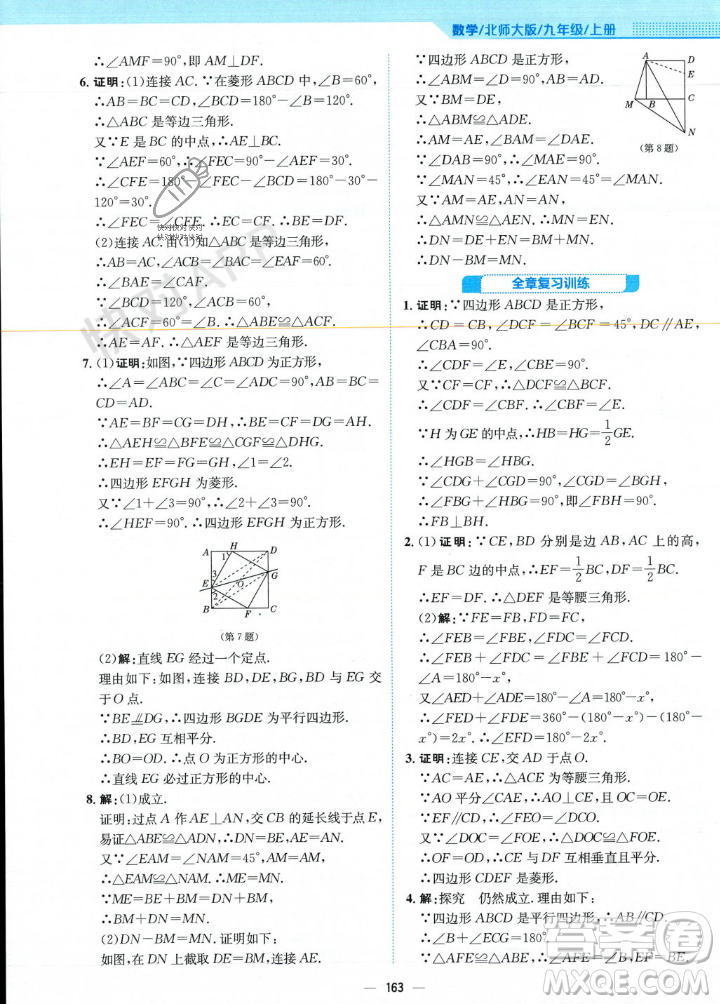 数学/北师大版/九年级/上册
∴∠AMF=90°,即 AM⊥DF.
6. 证明:(1)连接 AC. ∵在菱形 ABCD 中,∠B=60°,
∴AB=BC=CD,∠BCD=180°-∠B=120°.
∴△ABC 是等边三角形.
又∵E 是 BC 的中点,∴AE⊥BC.
∵∠AEF=60°,∴∠FEC=90°-∠AEF=30°.
∴∠CFE=180°-∠FEC-∠BCD=180°-30°-
120°=30°.
∴∠FEC=∠CFE. ∴EC=CF. ∴BE=DF.
(2)连接 AC. 由(1)知△ABC 是等边三角形,
∴AB=AC,∠ACB=60°.
∴∠B=∠ACF=60°.
∵∠BCD=120°,
∴∠ACF=60°=∠B. ∴△ABE≌△ACF.
∴AE=AF. ∴△AEF 是等边三角形.
7. (1)证明:如图,∵四边形 ABCD 为正方形,
∴∠A=∠ABC=∠C=∠ADC=90°,AB=
BC=CD=AD.
∵AE=BF=CG=DH,∴BE=CF=DG=AH.
∴△AEH≌△BFE≌△CGF≌△DHG.
∴EH=EF=FG=GH,∠1=∠2.
∴四边形 EFGH 为菱形.
又∵∠1+∠3=90°,∴∠2+∠3=90°.
∴∠HEF=90°. ∴四边形 EFGH 为正方形.
A H D
1
3
E O G
2
B F C
(第 7 题)
(2)解:直线 EG 经过一个定点.
理由如下:如图,连接 BD,DE,BG,设 EG 与 BD 交
于 O 点.
∵BE∥DG,∴四边形 BGDE 为平行四边形.
∴BD,EG 互相平分.
∴BO=OD. ∴点 O 为正方形的中心.
∴直线 EG 必过正方形的中心.
8. 解:(1)成立.
证明:过点 A 作 AE⊥AN,交 CB 的延长线于点 E,
易证△ABE≌△ADN,∴DN=BE,AE=AN.
又∵∠EAM=∠NAM=45°,AM=AM,
∴△EAM≌△NAM. ∴ME=MN.
∵ME=BE+BM=DN+BM,
∴DN+BM=MN.
(2)DN-BM=MN. 证明如下:
如图,在 DN 上截取 DE=BM,连接 AE.
∵四边形 ABCD 是正方形,
∴∠ABC=∠D=90°,AB=AD.
又∵BM=DE,
∴△ABM≌△ADE.
∴AM=AE,∠MAB=∠EAD.
∵∠MAN=45°=∠MAB+∠BAN,
∴∠DAE+∠BAN=45°.
∴∠EAN=90°-45°=45°=∠MAN.
又∵AM=AE,AN=AN,
∴△AMN≌△AEN. ∴MN=EN.
∴DN-DE=EN. ∴DN-BM=MN.
A D
E
M B C
N
(第 8 题)
全章复习训练
1. 证明:∵四边形 ABCD 是正方形,
∴CD=CB,∠DCF=∠BCF=45°,DC∥AE,
∠CBA=90°.
∴∠CDF=∠E,∠CBF+∠FBA=90°.
又∵CF=CF,∴△DCF≌△BCF.
∴∠CDF=∠CBF. ∴∠CBF=∠E.
∵H 为 GE 的中点,∴HB=HG=1/2GE.
∴∠HGB=∠HBG.
∵∠CDG=90°,∠CGD=∠BGH,
∴∠CDF+∠CGD=90°.
∴∠CBF+∠HBG=90°. ∴∠FBH=90°.
∴FB⊥BH.
2. (1)证明:∵CE,BD 分别是边 AB,AC 上的高,
F 是 BC 边的中点,∴DF=1/2BC,EF=1/2BC.
∴DF=EF. ∴△DEF 是等腰三角形.
(2)解:∵FE=FB,FD=FC,
∴∠FEB=∠FBE,∠FDC=∠FCD.
∴∠FEB+∠FDC=∠FBE+∠FCD=180°-
∠A=180°-x°.
又∵∠AED+∠ADE=180°-∠A=180°-x°,
∴∠FED+∠FDE=360°-(180°-x°)-(180°-
x°)=2x°. ∴∠EFD=180°-2x°.
3. 证明:连接 CE,交 AD 于点 O.
∵AC=AE,∴△ACE 为等腰三角形.
∵AO 平分∠CAE,∴AO⊥CE,OC=OE.
∵EF∥CD,∴∠DCO=∠FEO.
又∵∠DOC=∠FOE,∴△DOC≌△FOE.
∴OD=OF. ∴CE 与 DF 互相垂直且平分.
∴四边形 CDEF 是菱形.
4. 解:探究 仍然成立. 理由如下:
∵四边形 ABCD 是平行四边形,∴AB∥CD.
∴∠B+∠ECG=180°.
163